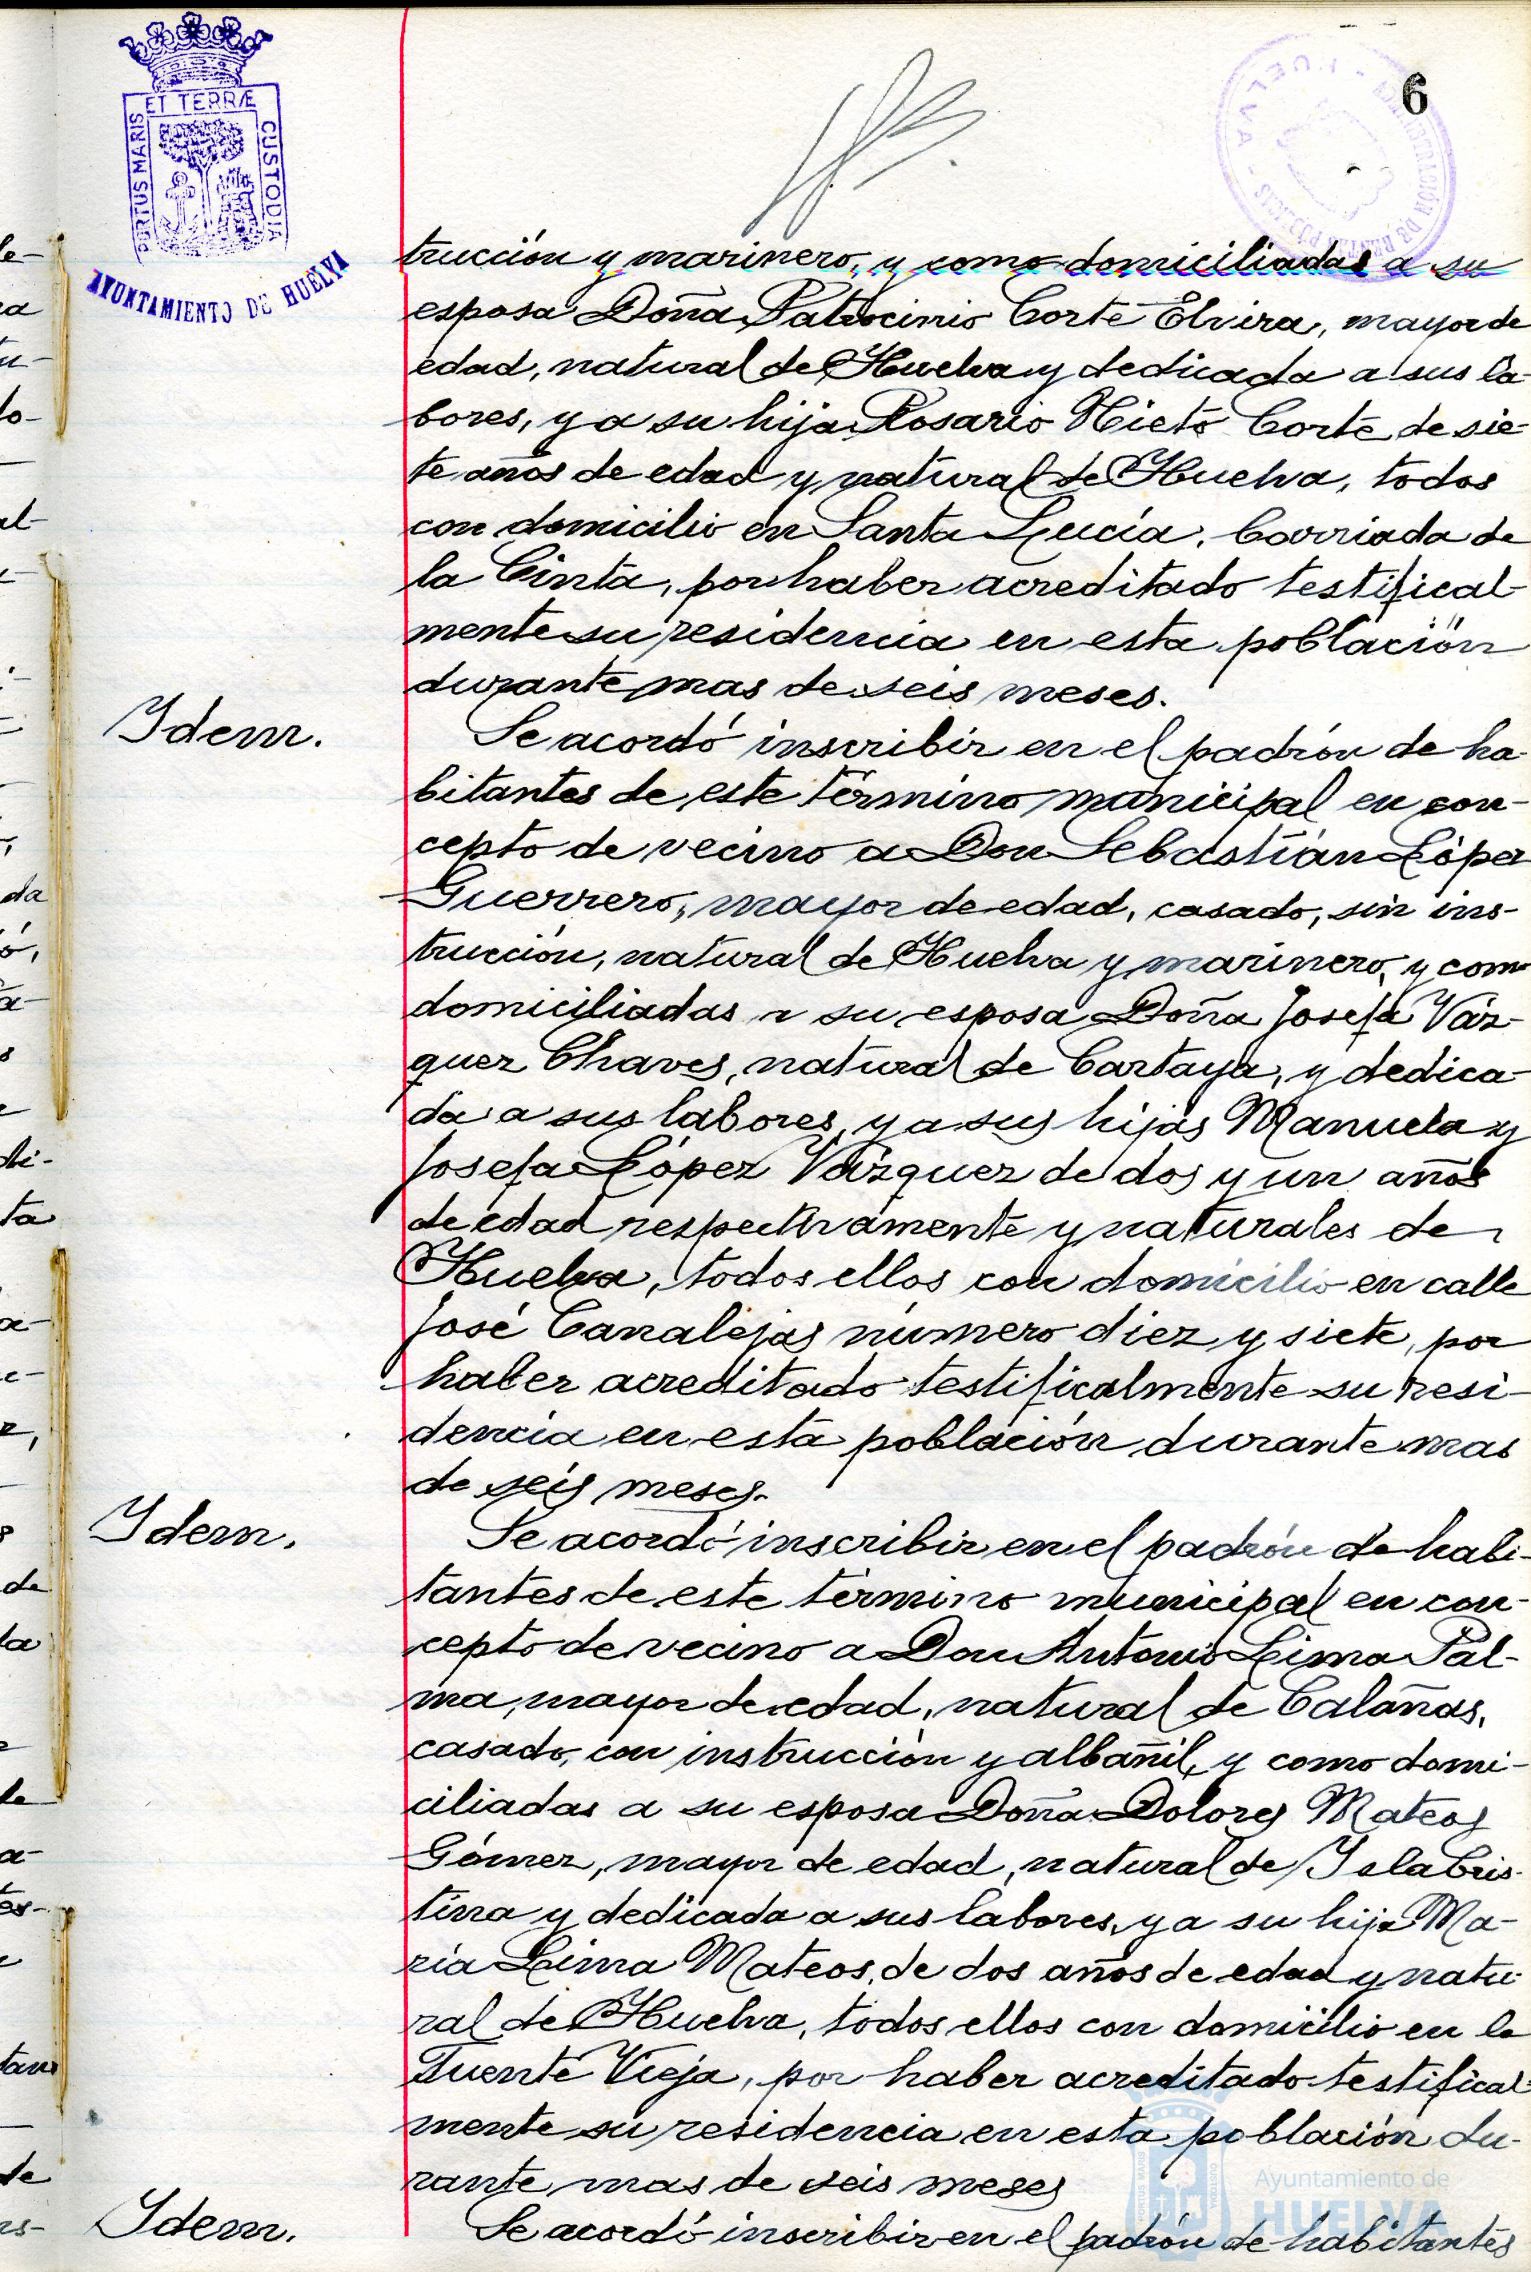 6
ET TERRÆ
PORTUS MARIS
CUSTODIA
AYUNTAMIENTO DE HUELVA
trucción y marinero, y como domiciliadas a su
esposa Doña Patrocinio Corte Elvira, mayor de
edad, natural de Huelva y dedicada a sus la-
bores, y a su hija Rosario Nieto Corte, de sie-
te años de edad y natural de Huelva, todos
con domicilio en Santa Lucía, barriada de
la Cinta, por haber acreditado testifical-
mente su residencia en esta población
durante mas de seis meses.
Ydem.
Se acordó inscribir en el padrón de ha-
bitantes de este término municipal en con-
cepto de vecino a Don Sebastián López
Guerrero, mayor de edad, casado, sin ins-
trucción, natural de Huelva y marinero, y como
domiciliadas a su esposa Doña Josefa Váz-
quez Chaves, natural de Cartaya, y dedica-
da a sus labores, y a sus hijas Manuela y
Josefa López Vázquez de dos y un años
de edad respectivamente y naturales de
Huelva, todos ellos con domicilio en calle
José Canalejas número diez y siete, por
haber acreditado testificalmente su resi-
dencia en esta población durante mas
de seis meses.
Ydem.
Se acordó inscribir en el padrón de habi-
tantes de este término municipal en con-
cepto de vecino a Don Antonio Lima Pal-
ma, mayor de edad, natural de Calañas,
casado, con instrucción y albañil, y como domi-
ciliadas a su esposa Doña Dolores Mateos
Gómez, mayor de edad, natural de Ysla Cris-
tina y dedicada a sus labores, y a su hija Ma-
ría Lima Mateos, de dos años de edad y natu-
ral de Huelva, todos ellos con domicilio en la
Fuente Vieja, por haber acreditado testifical-
mente su residencia en esta población du-
rante mas de seis meses
Ydem.
Se acordó inscribir en el padrón de habitantes
Ayuntamiento de
HUELVA